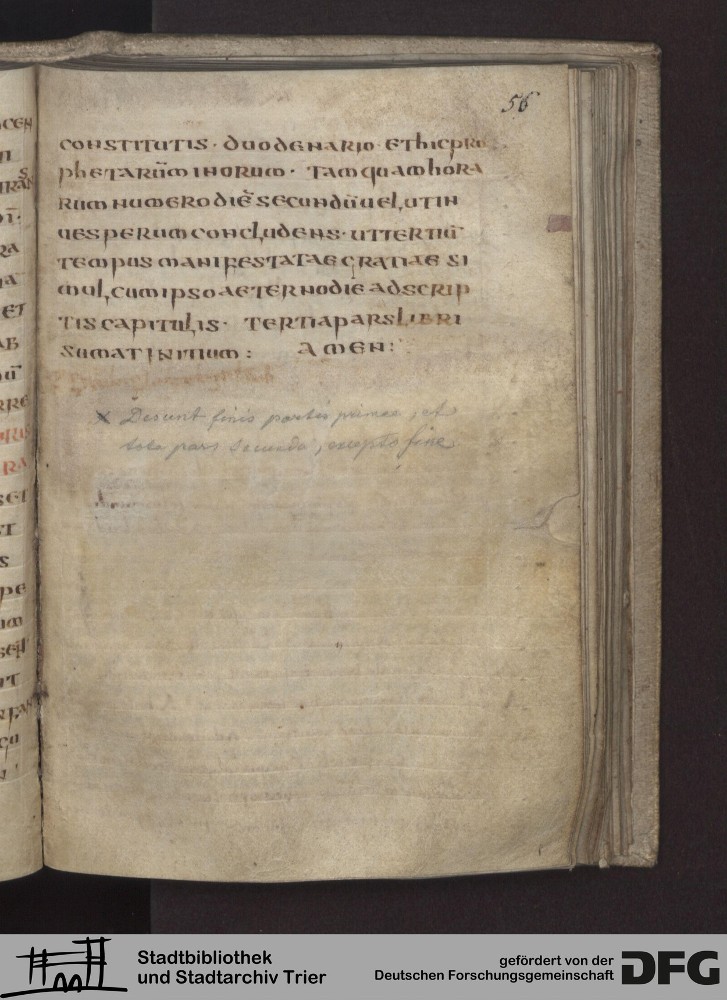 56
CONSTITUTIS · DUODENARIO · ET hIC PRO
phETARŪM MINORUM · TAMQUAM hORA
RUM NUMERO DIĒ SECUNDŪ UELUT IN
UESPERUM CONCLUDENS · UT TERTIŪ
TEMPUS MANIFESTATAE GRATIAE SI
MUL, CUM IPSO AETERNO DIE ADSCRIP
TIS CAPITULIS · TERTIA PARS LIBRI
SUMAT INITIUM : AMEN :
x Desunt finis partis primae, et
tota pars secunda, excepto fine.
Stadtbibliothek
und Stadtarchiv Trier
gefördert von der
Deutschen Forschungsgemeinschaft
DFG